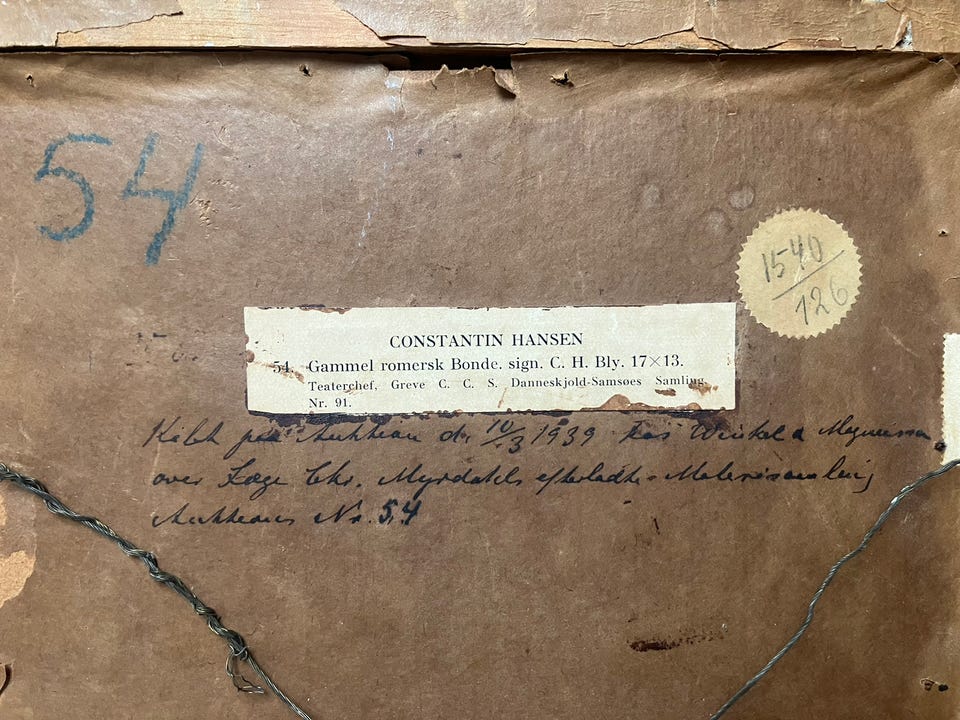 54
1540
126
CONSTANTIN HANSEN
54. Gammel romersk Bonde. sign. C. H. Bly. 17×13.
Teaterchef, Greve C. C. S. Danneskjold-Samsøes Samling.
Nr. 91.
Købt paa Auktion d. 10/3 1939 hos Winkel & Magnussen
over Læge Chr. Myrdahls efterladte Malerisamling
Auktions Nr. 54